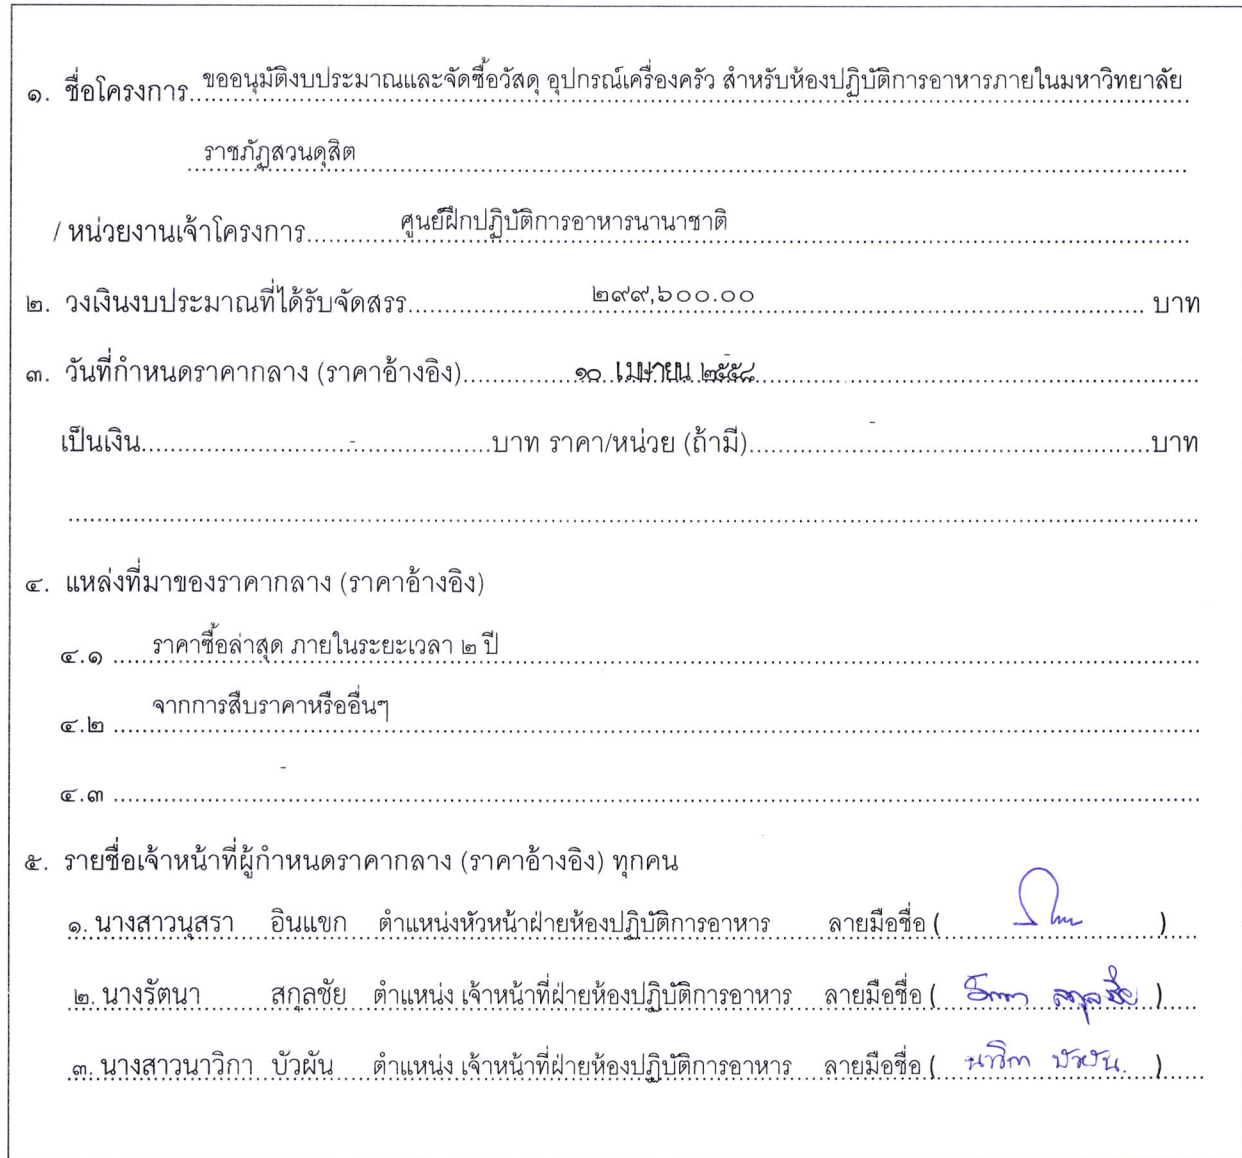 ๑. ชื่อโครงการ ขออนุมัติงบประมาณและจัดซื้อวัสดุ อุปกรณ์เครื่องครัว สำหรับห้องปฏิบัติการอาหารภายในมหาวิทยาลัย
ราชภัฏสวนดุสิต
/ หน่วยงานเจ้าโครงการ ศูนย์ฝึกปฏิบัติการอาหารนานาชาติ
๒. วงเงินงบประมาณที่ได้รับจัดสรร ๒๙๙,๖๐๐.๐๐ บาท
๓. วันที่กำหนดราคากลาง (ราคาอ้างอิง) ๑๐ เมษายน ๒๕๕๘
เป็นเงิน - บาท ราคา/หน่วย (ถ้ามี) - บาท
๔. แหล่งที่มาของราคากลาง (ราคาอ้างอิง)
๔.๑ ราคาซื้อล่าสุด ภายในระยะเวลา ๒ ปี
๔.๒ จากการสืบราคาหรืออื่นๆ
๔.๓ -
๕. รายชื่อเจ้าหน้าที่ผู้กำหนดราคากลาง (ราคาอ้างอิง) ทุกคน
๑. นางสาวนุสรา อินแขก ตำแหน่งหัวหน้าฝ่ายห้องปฏิบัติการอาหาร ลายมือชื่อ ( )
๒. นางรัตนา สกุลชัย ตำแหน่ง เจ้าหน้าที่ฝ่ายห้องปฏิบัติการอาหาร ลายมือชื่อ ( รัตนา สกุลชัย )
๓. นางสาวนาวิกา บัวผัน ตำแหน่ง เจ้าหน้าที่ฝ่ายห้องปฏิบัติการอาหาร ลายมือชื่อ ( นาวิกา บัวผัน. )